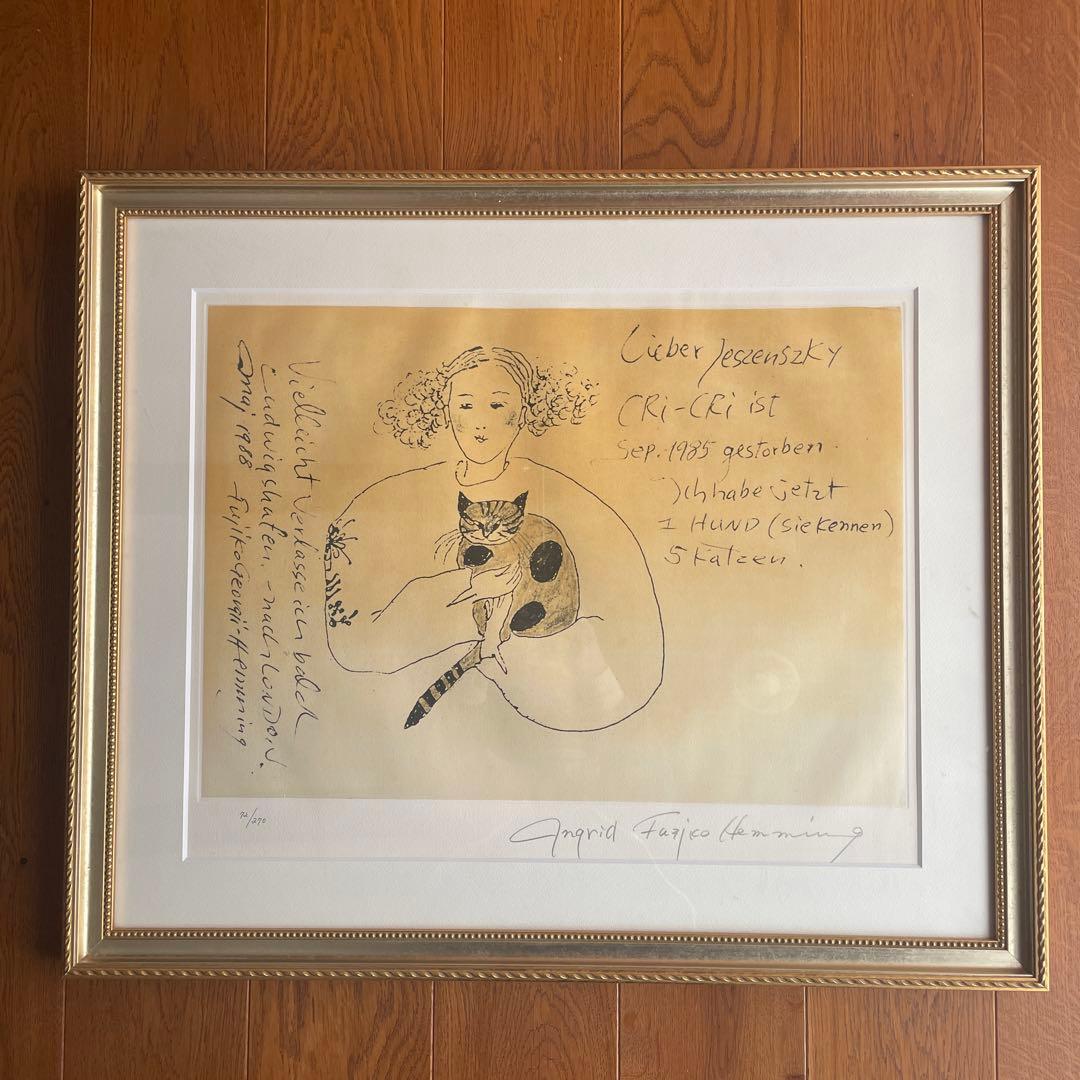 Lieber Jeszenszky
CRi-CRi ist
Sep. 1985 gestorben.
Ich habe jetzt
1 HUND (sie kennen)
5 Katzen.
Vielleicht Verlasse ich bald
Ludwigshafen. - nach LONDON.
maj 1988 Fujiko Georgii-Hemming
72/270
Ingrid Fuzjko Hemming